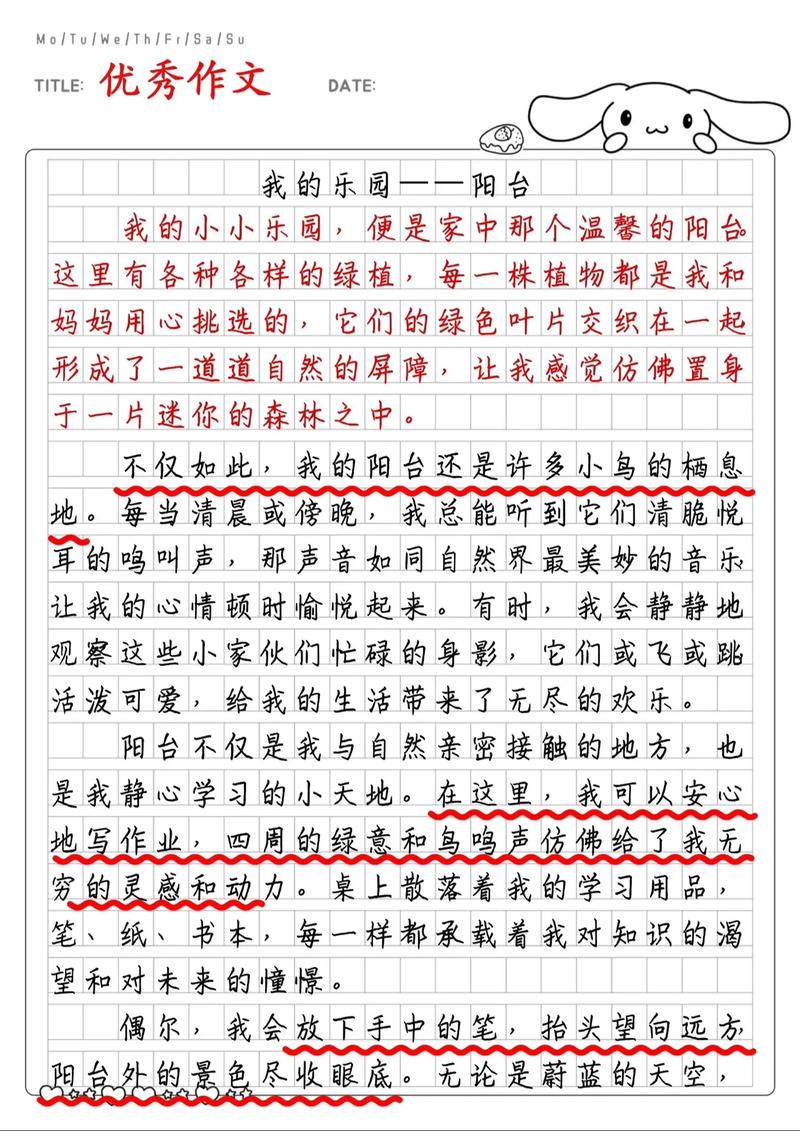 Mo/Tu/We/Th/Fr/Sa/Su
TITLE: 优秀作文 DATE:
我的乐园——阳台
我的小小乐园，便是家中那个温馨的阳台。
这里有各种各样的绿植，每一株植物都是我和
妈妈用心挑选的，它们的绿色叶片交织在一起
形成了一道道自然的屏障，让我感觉仿佛置身
于一片迷你的森林之中。
不仅如此，我的阳台还是许多小鸟的栖息
地。每当清晨或傍晚，我总能听到它们清脆悦
耳的鸣叫声，那声音如同自然界最美妙的音乐，
让我的心情顿时愉悦起来。有时，我会静静地
观察这些小家伙们忙碌的身影，它们或飞或跳
活泼可爱，给我的生活带来了无尽的欢乐。
阳台不仅是我与自然亲密接触的地方，也
是我静心学习的小天地。在这里，我可以安心
地写作业，四周的绿意和鸟鸣声仿佛给了我无
穷的灵感和动力。桌上散落着我的学习用品，
笔、纸、书本，每一样都承载着我对知识的渴
望和对未来的憧憬。
偶尔，我会放下手中的笔，抬头望向远方，
阳台外的景色尽收眼底。无论是蔚蓝的天空，